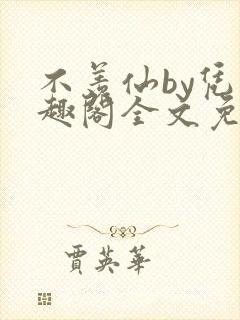 不羡仙by凭
趣阁全文免
贾英华